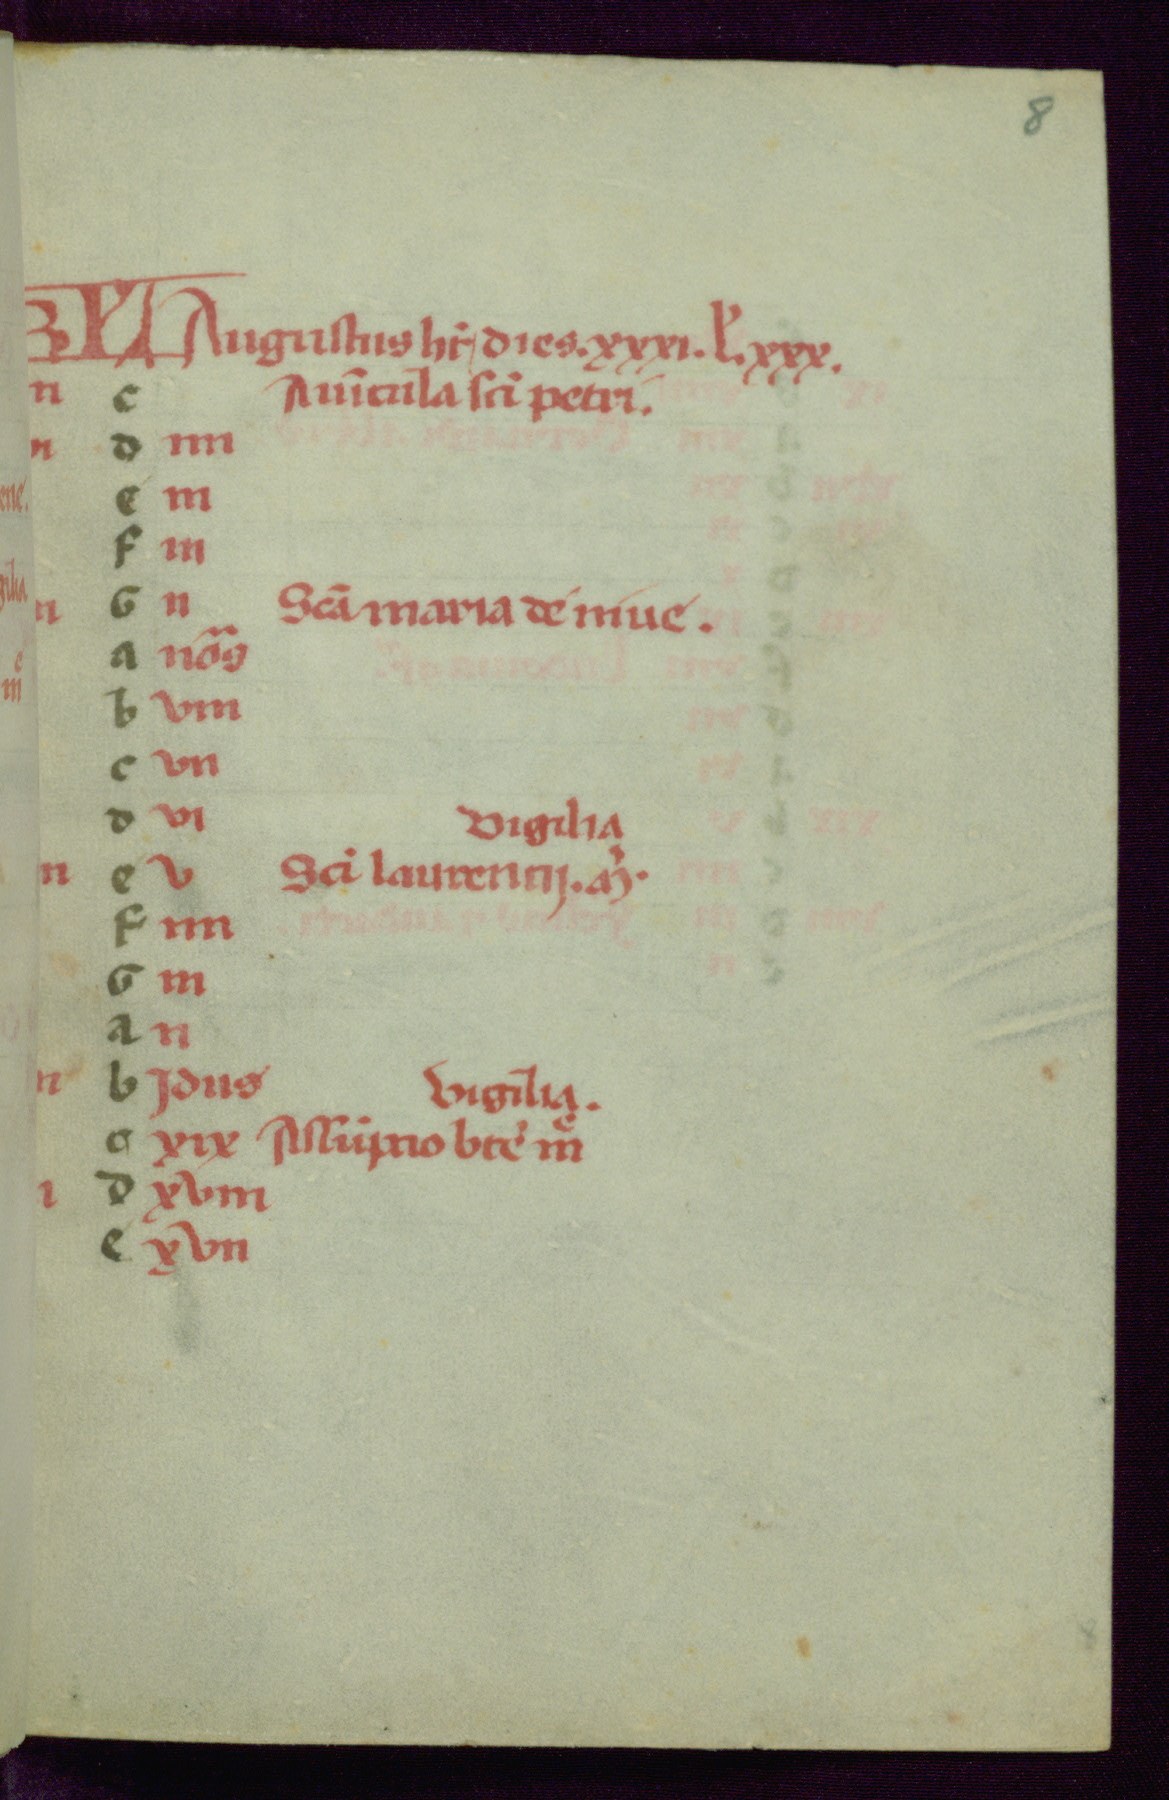 8
KL Augustus ht̄ dies. xxxi. l̄. xxx.
c Auīcula sci petri.
d iiii
e iii
f iii
G ii Scā maria de niue.
a nōs
b viii
c vii
d vi vigilia
e v Sci laurentij. m̄.
f iiii
G iii
a ii
b Jdus vigilia.
c xix Assūptio bte m̄e
d xviii
e xvii